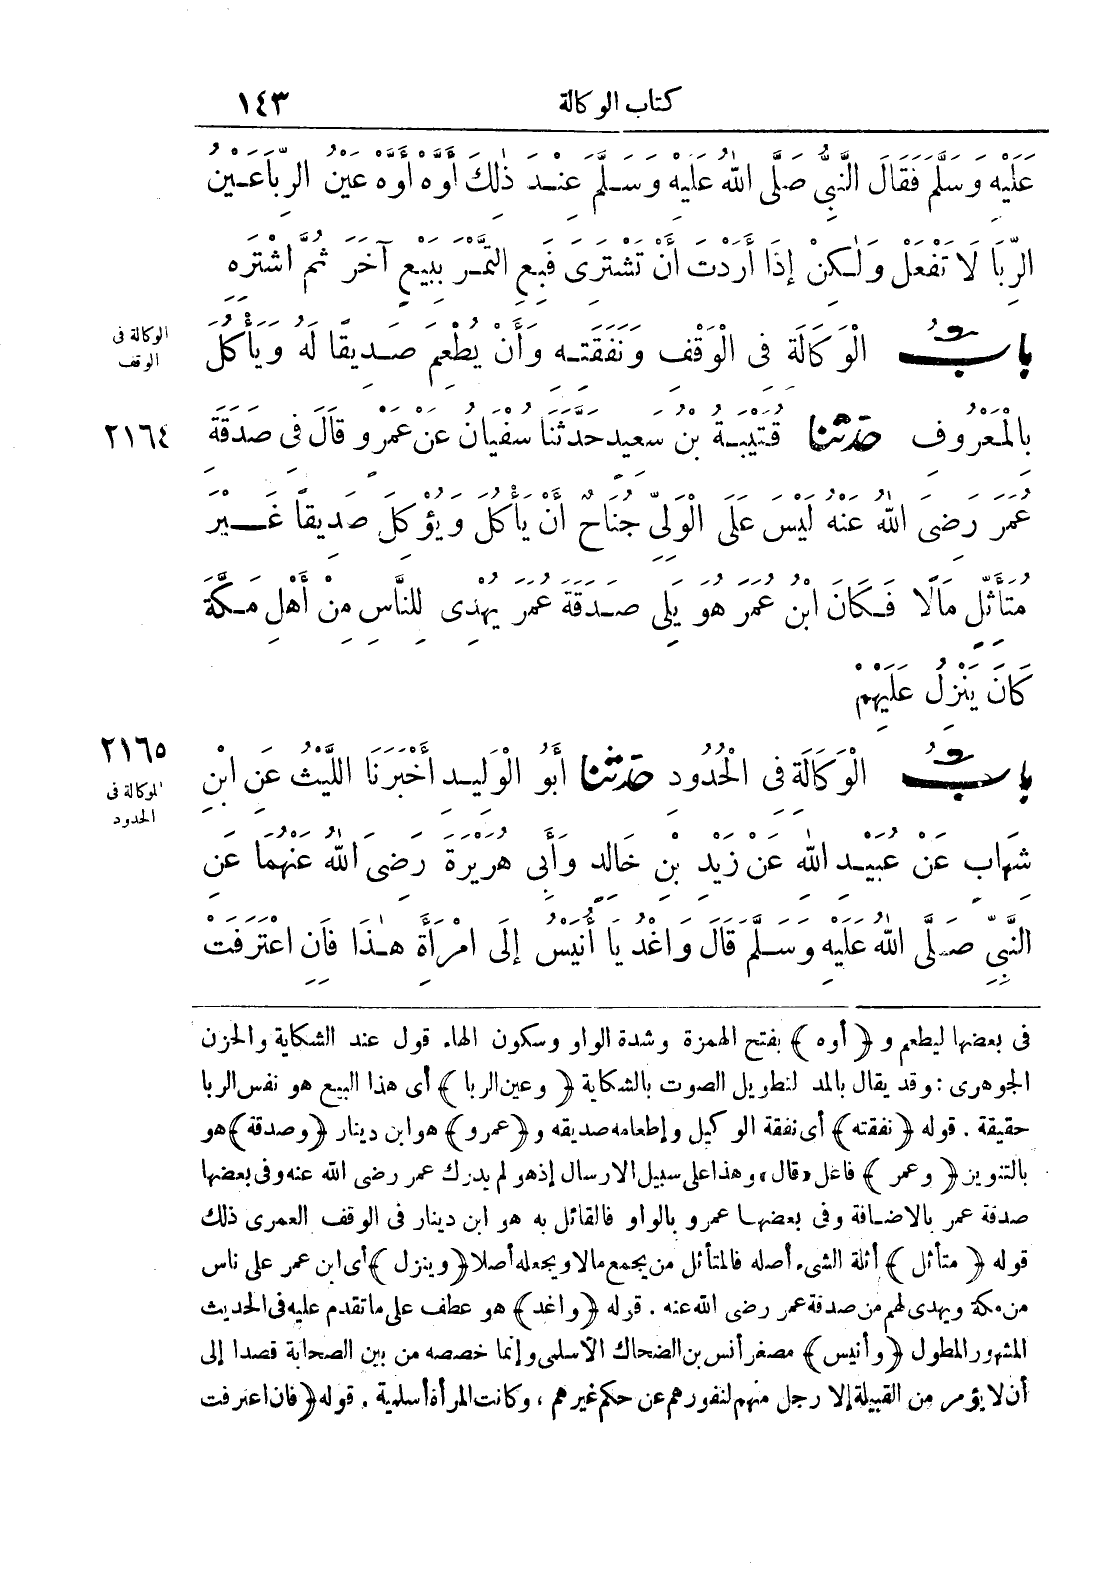 كتاب الوكالة ١٤٣
عَلَيْهِ وَسَلَّمَ فَقَالَ النَّبِيُّ صَلَّى اللهُ عَلَيْهِ وَسَلَّمَ عِنْدَ ذٰلِكَ أَوَّهْ أَوَّهْ عَيْنُ الرِّبَا عَيْنُ
الرِّبَا لَا تَفْعَلْ وَلٰكِنْ إِذَا أَرَدْتَ أَنْ تَشْتَرِىَ فَبِعِ التَّمْرَ بِبَيْعٍ آخَرَ ثُمَّ اشْتَرِهِ
بابُ الْوَكَالَةِ فِى الْوَقْفِ وَنَفَقَتِهِ وَأَنْ يُطْعِمَ صَدِيقًا لَهُ وَيَأْكُلَ
الوكالة فى
الوقف
بِالْمَعْرُوفِ حَدَّثَنَا قُتَيْبَةُ بْنُ سَعِيدٍ حَدَّثَنَا سُفْيَانُ عَنْ عَمْرٍو قَالَ فِى صَدَقَةِ
٢١٦٤
عُمَرَ رَضِىَ اللهُ عَنْهُ لَيْسَ عَلَى الْوَلِىِّ جُنَاحٌ أَنْ يَأْكُلَ وَيُؤْكِلَ صَدِيقًا غَيْرَ
مُتَأَثِّلٍ مَالًا فَكَانَ ابْنُ عُمَرَ هُوَ يَلِى صَدَقَةَ عُمَرَ يُهْدِى لِلنَّاسِ مِنْ أَهْلِ مَكَّةَ
كَانَ يَنْزِلُ عَلَيْهِمْ
بابُ الْوَكَالَةِ فِى الْحُدُودِ حَدَّثَنَا أَبُو الْوَلِيدِ أَخْبَرَنَا اللَّيْثُ عَنِ ابْنِ
٢١٦٥
الوكالة فى
الحدود
شِهَابٍ عَنْ عُبَيْدِ اللهِ عَنْ زَيْدِ بْنِ خَالِدٍ وَأَبِى هُرَيْرَةَ رَضِىَ اللهُ عَنْهُمَا عَنِ
النَّبِىِّ صَلَّى اللهُ عَلَيْهِ وَسَلَّمَ قَالَ وَاغْدُ يَا أُنَيْسُ إِلَى امْرَأَةِ هٰذَا فَإِنِ اعْتَرَفَتْ
فى بعضها ليطعم و ﴿أوه﴾ بفتح الهمزة وشدة الواو وسكون الهاء قول عند الشكاية والحزن
الجوهرى : وقد يقال بالمد لتطويل الصوت بالشكاية ﴿وعين الربا﴾ أى هذا البيع هو نفس الربا
حقيقة . قوله ﴿نفقته﴾ أى نفقة الوكيل وإطعامه صديقه و﴿عمرو﴾ هو ابن دينار ﴿وصدقة﴾ هو
بالتنوين ﴿وعمر﴾ فاعل «قال» وهذا على سبيل الارسال إذ هو لم يدرك عمر رضى الله عنه وفى بعضها
صدقة عمر بالاضافة وفى بعضها عمرو بالواو فالقائل به هو ابن دينار فى الوقف العمرى ذلك
قوله ﴿متأثل﴾ أثلة الشىء أصله فالمتأثل من يجمع مالا ويجعله أصلا ﴿وينزل﴾ أى ابن عمر على ناس
من مكة ويهدى لهم من صدقة عمر رضى الله عنه . قوله ﴿واغد﴾ هو عطف على ما تقدم عليه فى الحديث
المشهور المطول ﴿وأنيس﴾ مصغر أنس بن الضحاك الأسلمى وإنما خصصه من بين الصحابة قصدا إلى
أن لا يؤمر من القبيلة إلا رجل منهم لنفورهم عن حكم غيرهم ، وكانت المرأة أسلمية . قوله ﴿فان اعترفت